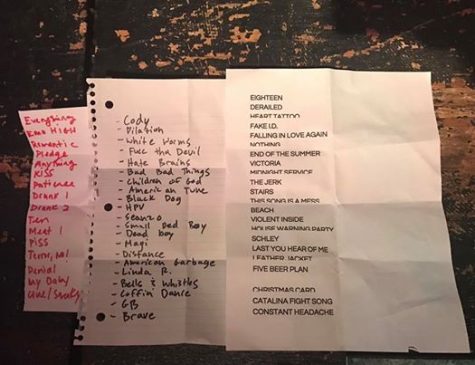 Everything
Emo High
Romantic
Pledge
Anything
Kiss
Patience
Drunk 1
Drunk 2
Ten
Meet 1
Piss
Denial
- Cody
- Dilation
- White Worms
- Fuck the Devil
- Hate Brains
- Bad Bad Things
- Children of God
- American Tune
- Black Dog
- HPV
- Small Red Boy
- Dead boy
- Magi
- Distance
- American Garbage
- Linda R.
- Bells & Whistles
- Coffin Dance
- GB
- Brave
EIGHTEEN
DERAILED
HEART TATTOO
FAKE I.D.
FALLING IN LOVE AGAIN
NOTHING
END OF THE SUMMER
VICTORIA
MIDNIGHT SERVICE
THE JERK
STAIRS
THIS SONG IS A MESS
BEACH
VIOLENT INSIDE
HOUSE WARMING PARTY
SCHLEY
LAST YOU HEAR OF ME
LEATHER JACKET
FIVE BEER PLAN
CHRISTMAS CARD
CATALINA FIGHT SONG
CONSTANT HEADACHE